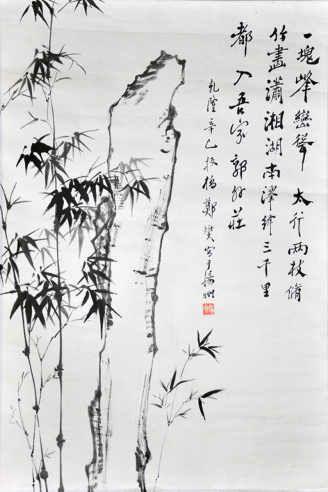 一塊峰巒聳太行两枝脩
竹盡瀟湘湖南澤絳三千里
都入吾家郭外莊
乾隆辛巳板橋鄭燮寫于揚州